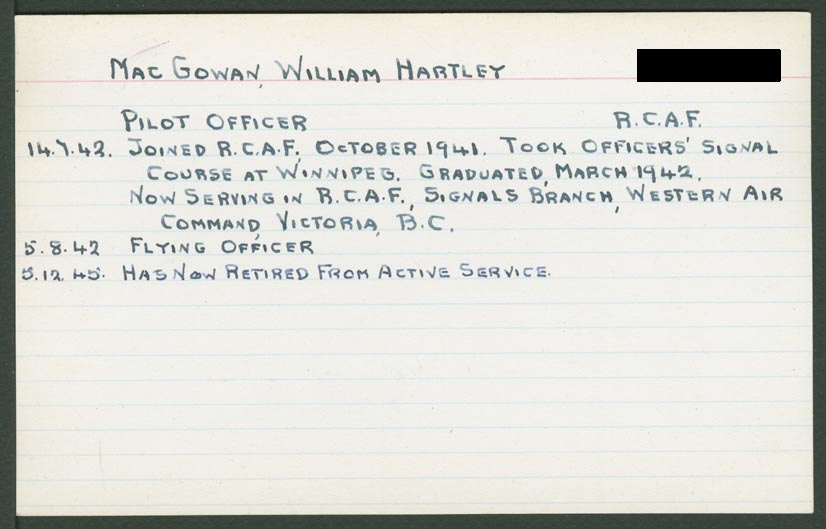 MacGowan, William Hartley
Pilot Officer R.C.A.F.
14.7.42. Joined R.C.A.F. October 1941. Took Officers' Signal
Course at Winnipeg. Graduated, March 1942.
Now Serving in R.C.A.F., Signals Branch, Western Air
Command, Victoria, B.C.
5.8.42 Flying Officer
5.12.45. Has Now Retired From Active Service.